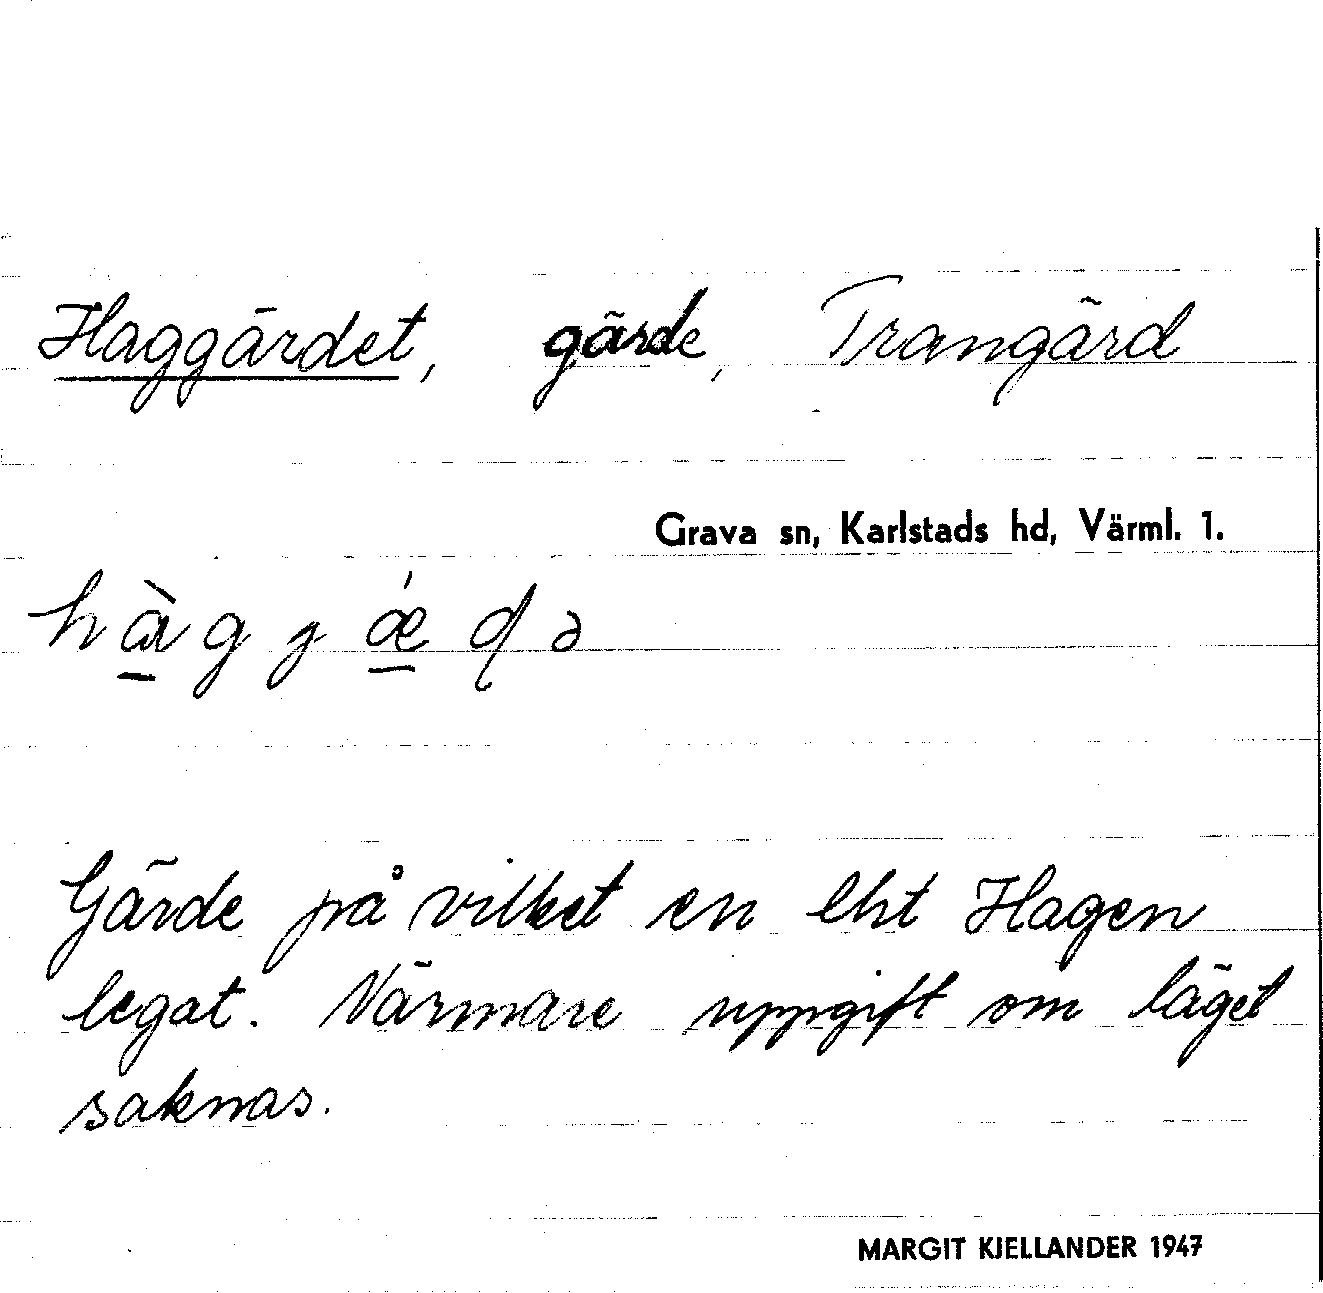 Haggärdet, gärde, Trangärd
Grava sn, Karlstads hd, Värml. 1.
Gärde på vilket en lht Hagen
legat. Närmare uppgift om läget
saknas.
MARGIT KJELLANDER 1947